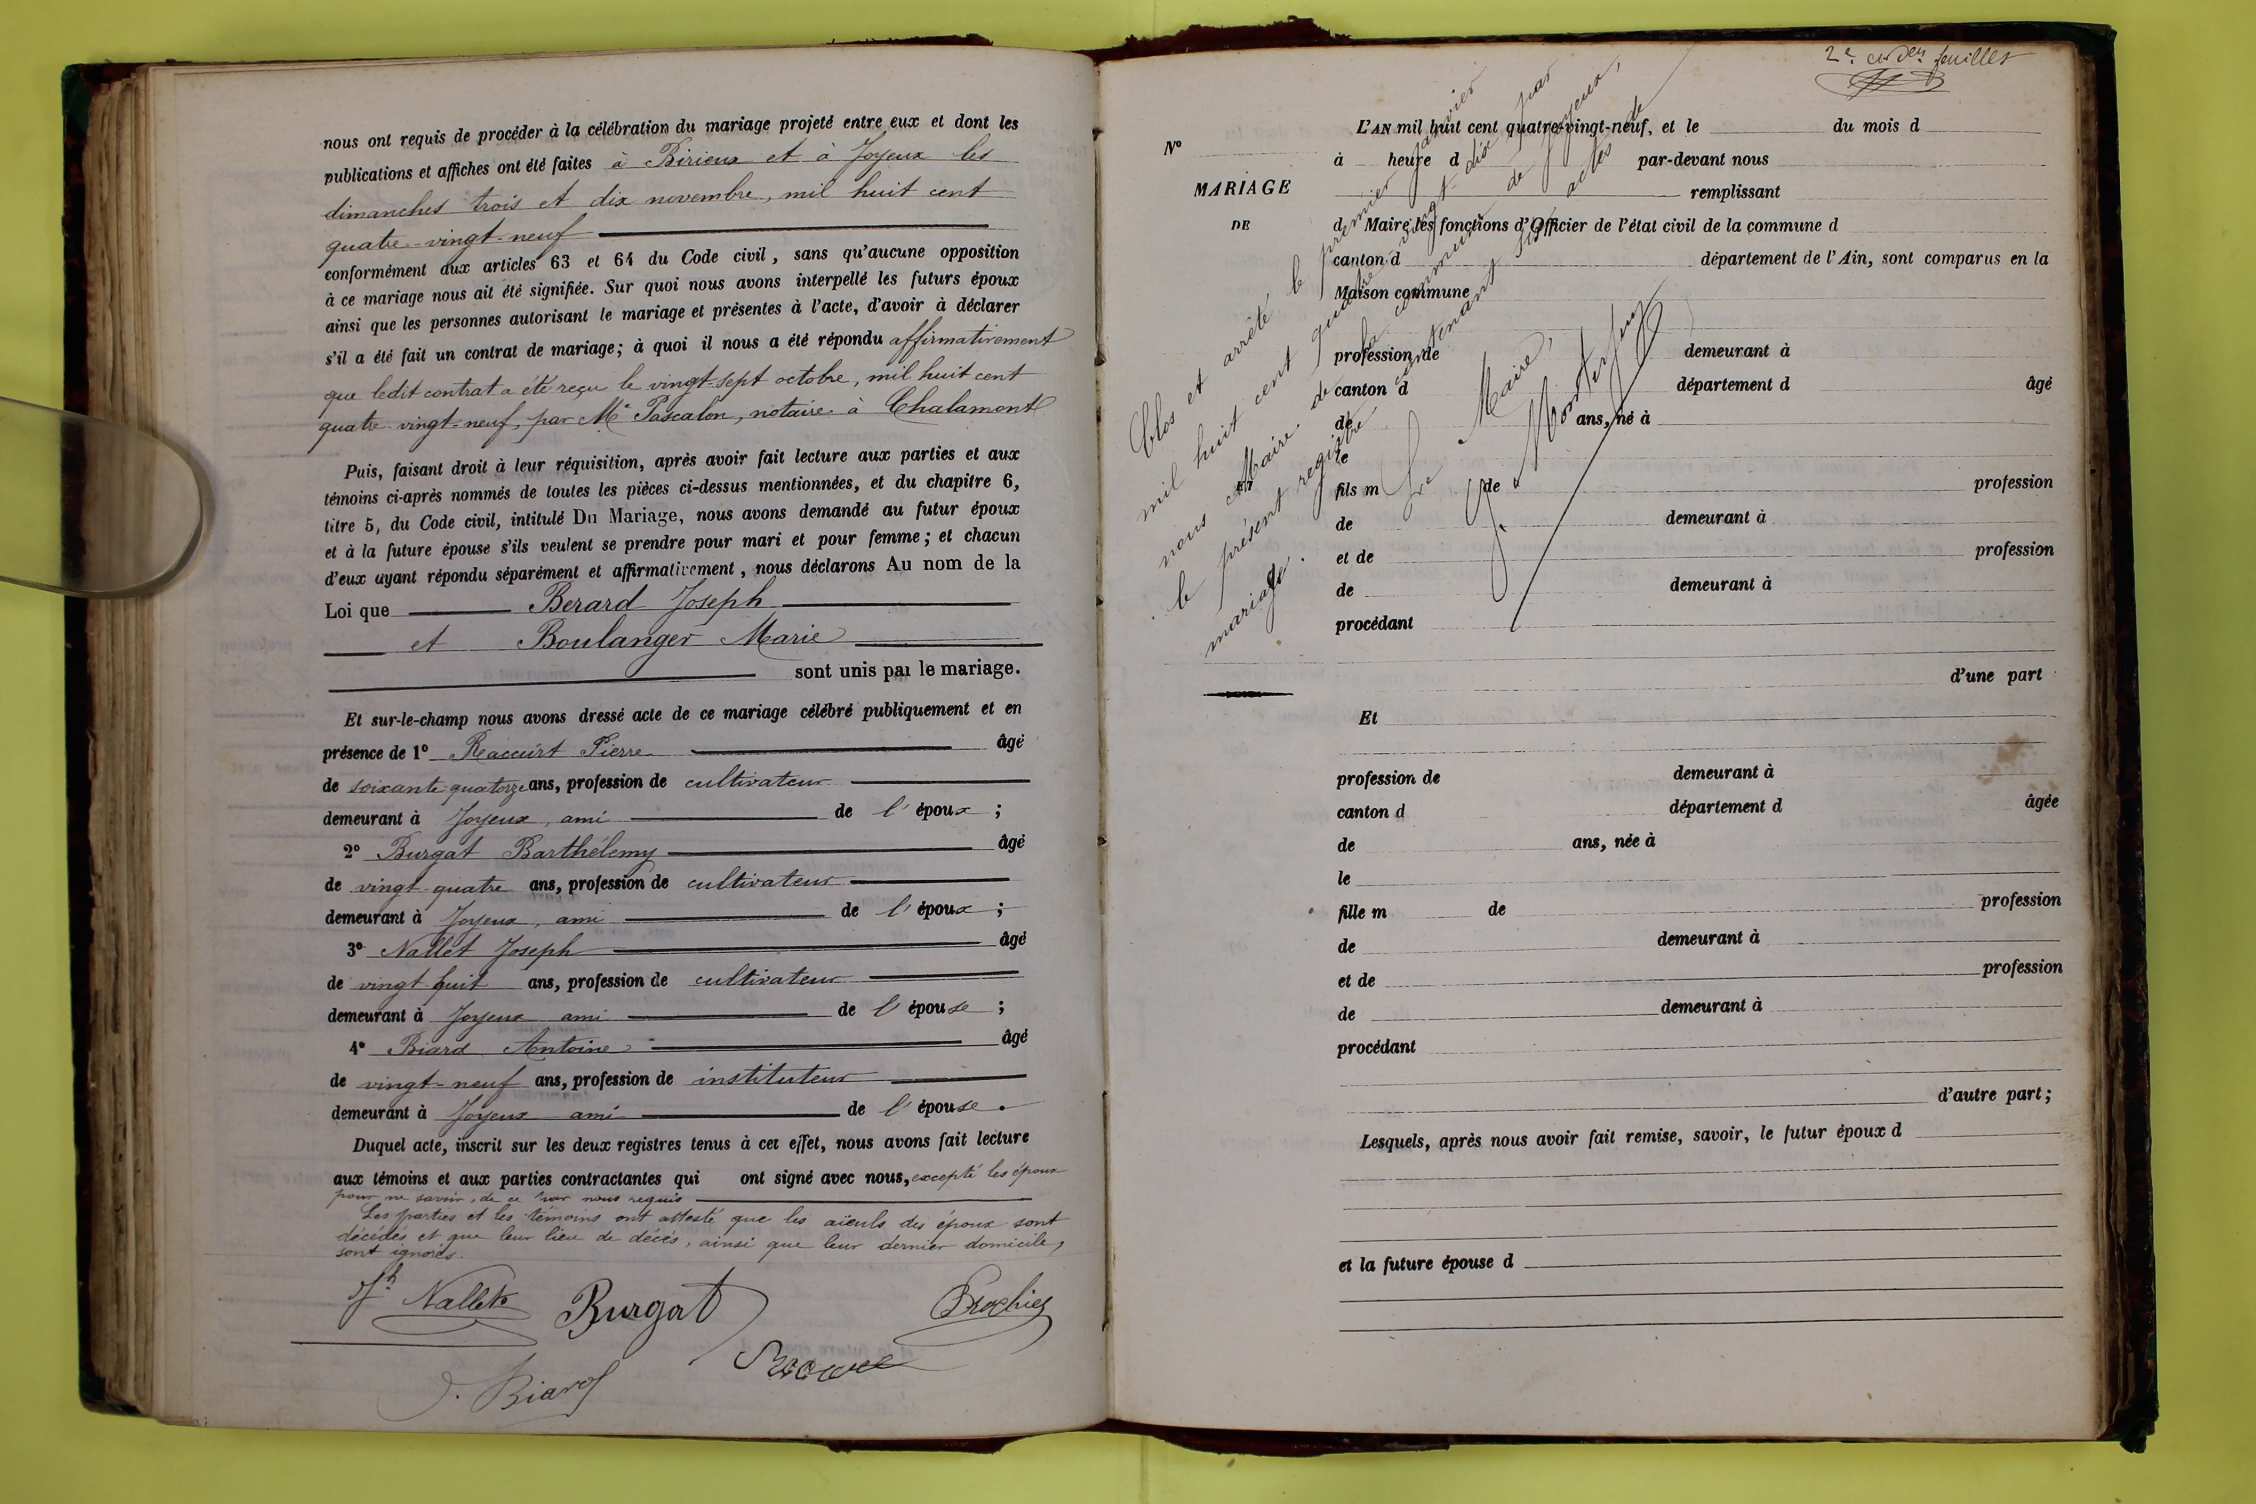 nous ont requis de procéder à la célébration du mariage projeté entre eux et dont les
publications et affiches ont été faites à Birieux et à Joyeux les
dimanches trois et dix novembre, mil huit cent
quatre-vingt-neuf
conformément aux articles 63 et 64 du Code civil, sans qu'aucune opposition
à ce mariage nous ait été signifiée. Sur quoi nous avons interpellé les futurs époux
ainsi que les personnes autorisant le mariage et présentes à l'acte, d'avoir à déclarer
s'il a été fait un contrat de mariage; à quoi il nous a été répondu affirmativement
que ledit contrat a été reçu le vingt-sept octobre, mil huit cent
quatre-vingt-neuf, par Me Pascalon, notaire à Chalamont
Puis, faisant droit à leur réquisition, après avoir fait lecture aux parties et aux
témoins ci-après nommés de toutes les pièces ci-dessus mentionnées, et du chapitre 6,
titre 5, du Code civil, intitulé Du Mariage, nous avons demandé au futur époux
et à la future épouse s'ils veulent se prendre pour mari et pour femme; et chacun
d'eux ayant répondu séparément et affirmativement, nous déclarons Au nom de la
Loi que Berard Joseph
et Boulanger Marie
sont unis par le mariage.
Et sur-le-champ nous avons dressé acte de ce mariage célébré publiquement et en
présence de 1° Réaccurt Pierre âgé
de soixante quatorze ans, profession de cultivateur
demeurant à Joyeux, ami de l'époux ;
2° Burgat Barthélemy âgé
de vingt-quatre ans, profession de cultivateur
demeurant à Joyeux, ami de l'époux ;
3° Nallet Joseph âgé
de vingt huit ans, profession de cultivateur
demeurant à Joyeux ami de l'épouse ;
4° Biard Antoine âgé
de vingt-neuf ans, profession de instituteur
demeurant à Joyeux ami de l'épouse.
Duquel acte, inscrit sur les deux registres tenus à cet effet, nous avons fait lecture
aux témoins et aux parties contractantes qui ont signé avec nous, excepté les époux
pour ne savoir, de ce par nous requis
Les parties et les témoins ont attesté que les aïeuls des époux sont
décédés et que leur lieu de décès, ainsi que leur dernier domicile,
sont ignorés.
Jh Nallet Burgat
Biard
2e et den feuillet
N°
MARIAGE
DE
L'AN mil huit cent quatre-vingt-neuf, et le du mois d
à heure d par-devant nous
remplissant
d Maire les fonctions d'Officier de l'état civil de la commune d
canton d département de l'Ain, sont comparus en la
Maison commune
profession de demeurant à
canton d département d âgé
de ans, né à
le
fils m de profession
de demeurant à
et de profession
de demeurant à
procédant
d'une part
Et
profession de demeurant à
canton d département d âgée
de ans, née à
le
fille m de profession
de demeurant à
et de profession
de demeurant à
procédant
d'autre part;
Lesquels, après nous avoir fait remise, savoir, le futur époux d
et la future épouse d
Clos et arrêté le premier janvier
mil huit cent quatre-vingt-dix par
nous Maire de la commune de Joyeux,
le présent registre contenant six actes de
mariage.
Le Maire,